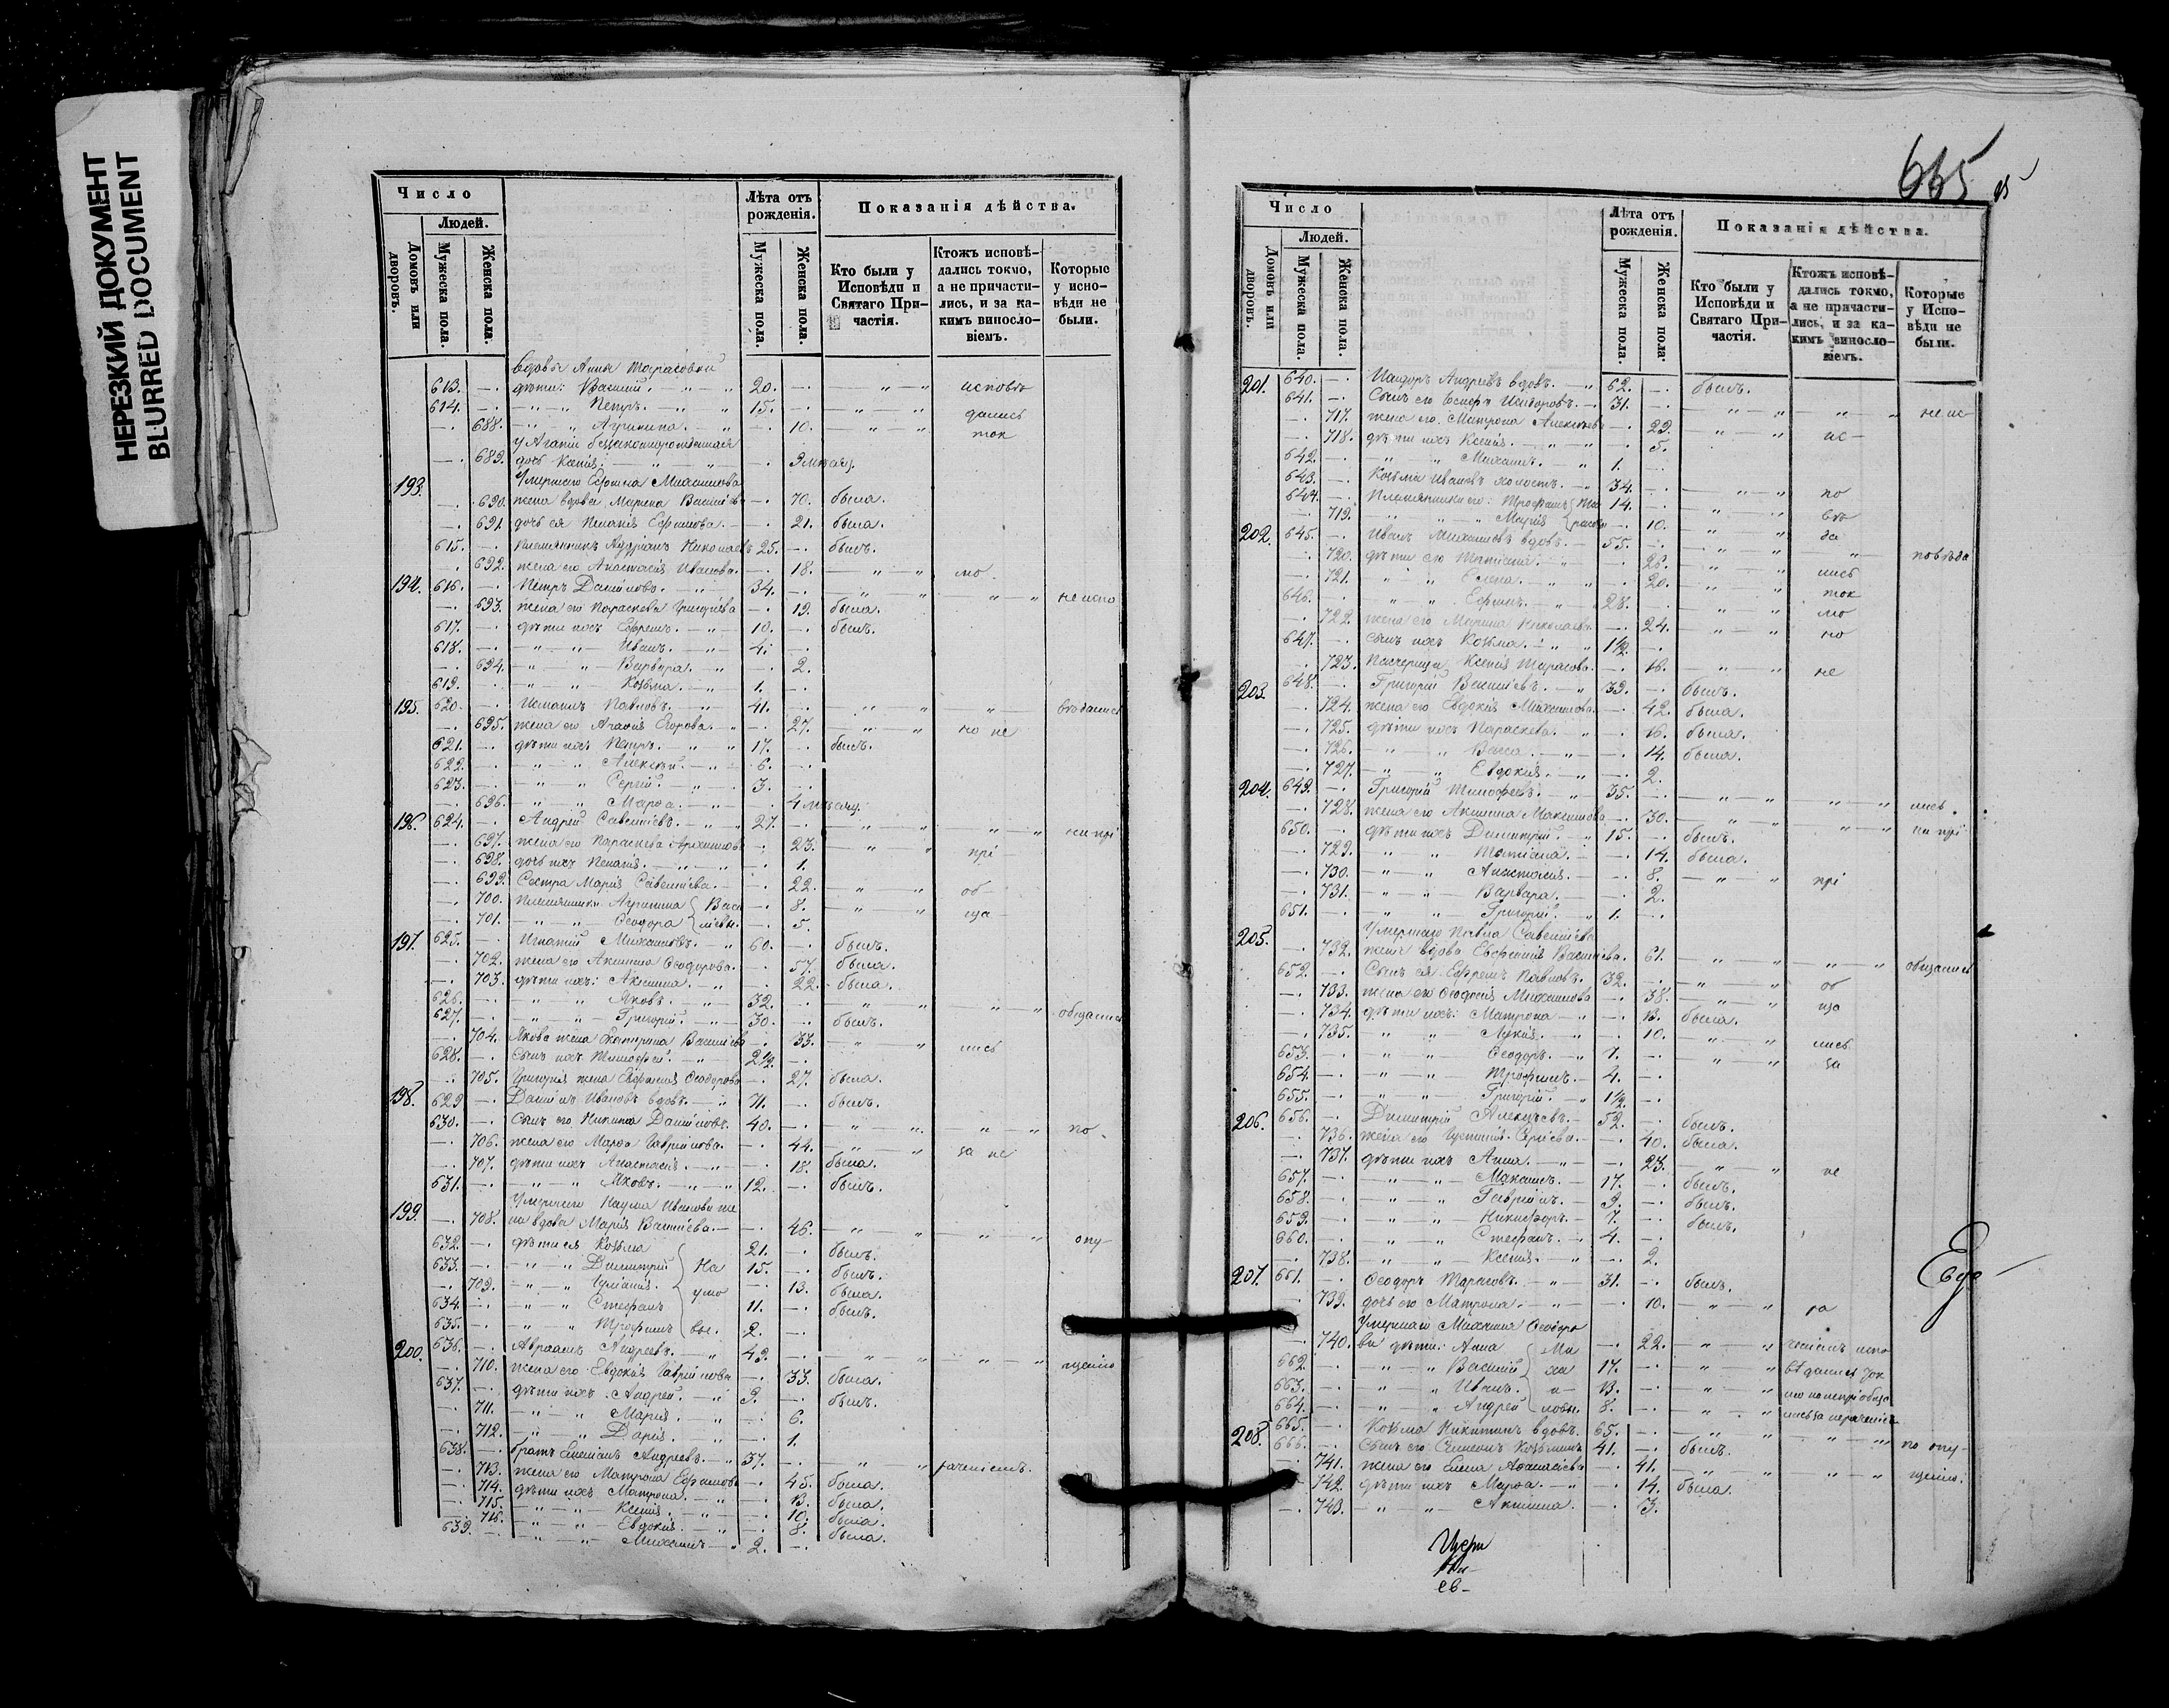 НЕРЕЗКИЙ ДОКУМЕНТ
BLURRED DOCUMENT
Число
Людей.
Домовъ или дворовъ.
Мужеска пола.
Женска пола.
Лѣта отъ рожденія.
Мужеска пола.
Женска пола.
Показанія дѣйства.
Кто были у Исповѣди и Святаго Причастія.
Ктожъ исповѣдались токмо, а не причастились, и за какимъ винословіемъ.
Которые у исповѣди не были.
вдовы Анны Тарасовой
613. —. дѣти: Василий. 20. —. исповѣ
614. —. Петръ. 15. —. дались
—. 688. Агрипина. —. 10. ток
У Агатiи
689. дочь Ксенія. —. 9 мѣсяц.
193. Умершаго Ефима Михайлова
—. 690. жена вдова Марина Василіева —. 70. была.
—. 691. дочь ея Пелагія Ефимова. —. 21. была.
615. —. племянникъ Адріанъ Николаевъ 25. —. былъ.
—. 692. жена его Анастасія Иванова. —. 18. мо
194. 616. —. Петръ Даніиловъ. 34. —. не испо
—. 693. жена его Параскева Григоріева —. 19. была.
617. —. дѣти ихъ Ефремъ. 10. —. былъ.
618. —. Иванъ. 4. —.
—. 694. Варвара. —. 2.
619. —. Козьма. 1. —.
195. 620. —. Павловъ. 41. —. вѣдались
—. 695. жена его Агафія Егорова. —. 27. но не
621. —. дѣти ихъ Петръ. 17. —. былъ.
622. —. Алексѣй. 6. —.
623. —. Сергій. 3. —.
—. 696. Марѳа. —. 4 мѣсяц.
196. 624. —. Андрей Савеліевъ. 27. —. ни прі
—. 697. жена его Параскева —. 23. прі
—. 698. дочь ихъ Пелагія. —. 1.
—. 699. Сестра Марія Савеліева. —. 22. об
—. 700. племянники Агрипина Васи —. 8. ща
—. 701. Ѳеодора ліевы. —. 5.
197. 625. —. Игнатій Михаиловъ. 60. —. былъ.
—. 702. жена его Акилина Ѳеодорова. —. 57. была.
—. 703. дѣти ихъ: Акилина. —. 22. была.
626. —. Яковъ. 32. —. общались
627. —. Григорій. 30. —. былъ.
—. 704. Якова жена Екатерина Василіева —. 33. лись
628. —. Сынъ ихъ Тимофей. 2½. —.
—. 705. Григорія жена Евфимія Ѳеодорова —. 27. была.
198. 629. —. Даніилъ Ивановъ вдовъ. 71. —. былъ.
630. —. Сынъ его Никита Даніиловъ. 40. —. по
—. 706. жена его Марѳа Гавріилова. —. 44. за не
—. 707. дѣти ихъ Анастасія. —. 18. была.
631. —. Яковъ. 12. —. былъ.
199. Умершаго Наума Иванова же
—. 708. на вдова Марія Василіева. —. 46. опу
632. —. дѣти ея Козьма 21. —. былъ.
633. —. Димитрій На 15. —. былъ.
—. 709. Іуліанія. умо —. 13. была.
634. —. Стефанъ 11. —. былъ.
635. —. Трофимъ вы. 2. —.
200. 636. —. Авраамъ Андреевъ. 49. —. щенію
—. 710. жена его Евдокія Гавріилова —. 33. была.
637. —. дѣти ихъ: Андрей. 9. —. былъ.
—. 711. Марія. —. 6.
—. 712. Дарія. —. 1.
638. —. братъ Андреевъ. 37. —. раченіемъ.
—. 713. жена его Матрона Ефимова —. 45. была.
—. 714. дѣти ихъ Матрона. —. 13. была.
—. 715. Ксенія. —. 10. была.
—. 716. Евдокія. —. 8. была.
639. —. Михаилъ 2. —.
665
Число
Людей.
Домовъ или дворовъ.
Мужеска пола.
Женска пола.
Лѣта отъ рожденія.
Мужеска пола.
Женска пола.
Показанія дѣйства.
Кто были у Исповѣди и Святаго Причастія.
Ктожъ исповѣдались токмо, а не причастились, и за какимъ винословіемъ.
Которые у Исповѣди не были.
201. 640. —. Исидоръ Андреевъ вдовъ. 62. —. былъ.
641. —. Сынъ его Исидоровъ. 31. —. не ис
—. 717. жена его Матрона Алексѣева —. 29. ис
—. 718. дѣти ихъ Ксенія. —. 5.
642. —. Михаилъ. 1. —.
643. —. Козьма Ивановъ холостъ. 34. —. по
644. —. Племянники его: Трофимъ Та 14. —. вѣ
—. 719. Марія расовы —. 10. да
202. 645. —. Иванъ Михаиловъ вдовъ. 55. —. повѣда
—. 720. дѣти его Татіана. —. 26. лись
—. 721. Елена. —. 20. ток
646. —. Ефимъ. 28. —. мо
—. 722. жена его Марина Николаева —. 24. но
647. —. Сынъ ихъ Козьма. 1½. —.
—. 723. Падчерица Ксенія Тарасова. —. 16. не
203. 648. —. Григорій Василіевъ. 39. —. былъ.
—. 724. жена его Евдокія Михаилова. —. 42. была.
—. 725. дѣти ихъ Параскева. —. 16. была.
—. 726. Васса. —. 14. была.
—. 727. Евдокія. —. 2.
204. 649. —. Григорій Тимофеевъ. 35. —. лись
—. 728. жена его Акилина Максимова —. 30. ни прі
650. —. дѣти ихъ Димитрій. 15. —. былъ.
—. 729. Татіана. —. 14. была.
—. 730. Анастасія. —. 8. прі
—. 731. Варвара. —. 2.
651. —. Григорій. 1. —.
205. Умершаго Павла Савеліева
—. 732. жена вдова Евфросинія Василіева. —. 61. общались
652. —. Сынъ ея Ефремъ Павловъ. 32. —. об
—. 733. жена его Михаилова —. 38. ща
—. 734. дѣти ихъ: Матрона —. 13. была.
—. 735. Лукія. —. 10. лись
653. —. Ѳеодоръ. 7. —. за
654. —. Трофимъ. 4. —.
655. —. Григорій. 1½. —.
206. 656. —. Димитрій Алексѣевъ. 52. —. былъ.
—. 736. жена его Іустинія Сергіева. —. 40. была.
—. 737. дѣти ихъ Анна. —. 23. не
657. —. Максимъ. 17. —. былъ.
658. —. Гавріилъ. 9. —. былъ.
659. —. Никифоръ. 7. —. былъ.
660. —. Стефанъ. 4. —.
—. 738. Ксенія. —. 2.
207. 661. —. Ѳеодоръ Тарасовъ. 31. —. былъ.
—. 739. дочь его Матрона. —. 10. ра
Умершаго Михаила Ѳеодоро
—. 740. ва дѣти: Анна Ми —. 22. ченіемъ испо
662. —. Василій ха 17. —. вѣдались ток
663. —. Иванъ. и 13. —. мо но не пріобща
664. —. Андрей ловы. 8. —. лись за нераченіем
208. 665. —. Козьма Никитинъ вдовъ. 65. —. по опу
666. —. Сынъ его Симеонъ Козьминъ 41. —. былъ.
—. 741. жена его Елена Аѳанасіева —. 41. щенію.
—. 742. дѣти ихъ Марѳа. —. 14. была.
—. 743. Акилина. —. 3.